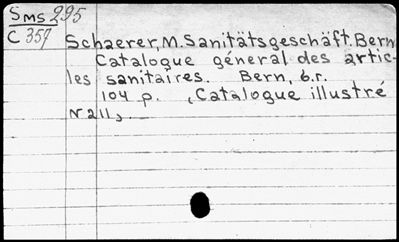 SMS 295
C 357
Schaerer, M. Sanitätsgeschäft. Bern
Catalogue géneral des artic-
les sanitaires. Bern, 6.r.
104 p. (Catalogue illustré
N° 211),